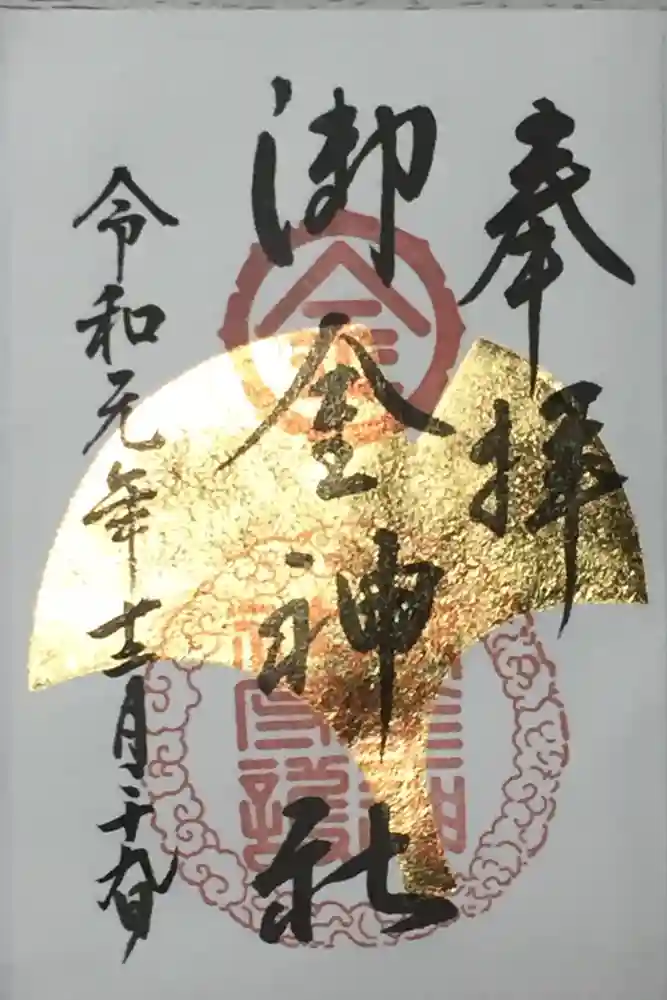 奉拝
御金神社
令和元年十二月二十九日